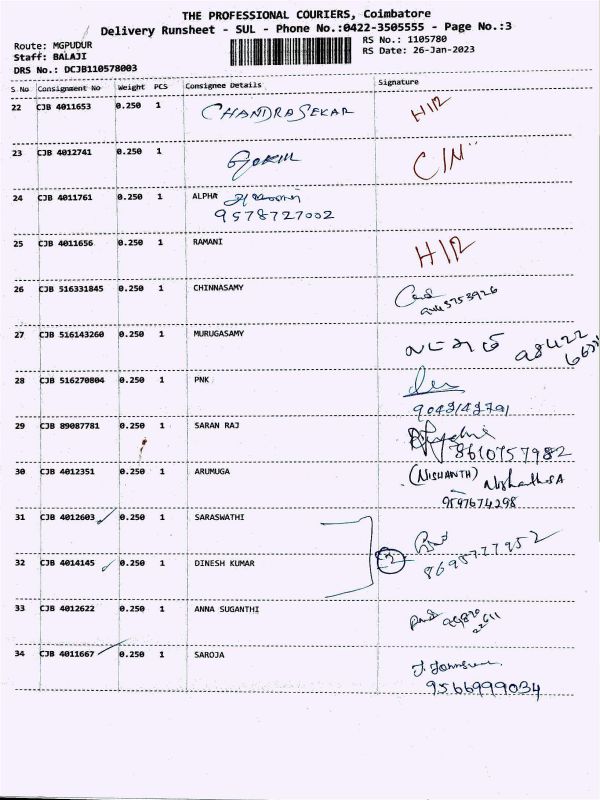 THE PROFESSIONAL COURIERS, Coimbatore
Delivery Runsheet - SUL - Phone No.:0422-3505555 - Page No.:3
Route: MGPUDUR
RS No.: 1105780
Staff: BALAJI
RS Date: 26-Jan-2023
DRS No.: DCJB110578003
S No Consignment No Weight PCS Consignee Details Signature
22 CJB 4011653 0.250 1 CHANDRASEKAR
23 CJB 4012741 0.250 1
24 CJB 4011761 0.250 1 ALPHA
9578727002
25 CJB 4011656 0.250 1 RAMANI
26 CJB 516331845 0.250 1 CHINNASAMY
27 CJB 516143260 0.250 1 MURUGASAMY
28 CJB 516270804 0.250 1 PNK
29 CJB 89087781 0.250 1 SARAN RAJ
8610757982
30 CJB 4012351 0.250 1 ARUMUGA (NISHANTH)
9597674298
31 CJB 4012603 0.250 1 SARASWATHI
32 CJB 4014145 0.250 1 DINESH KUMAR 2
8695727952
33 CJB 4012622 0.250 1 ANNA SUGANTHI
34 CJB 4011667 0.250 1 SAROJA
9566999034